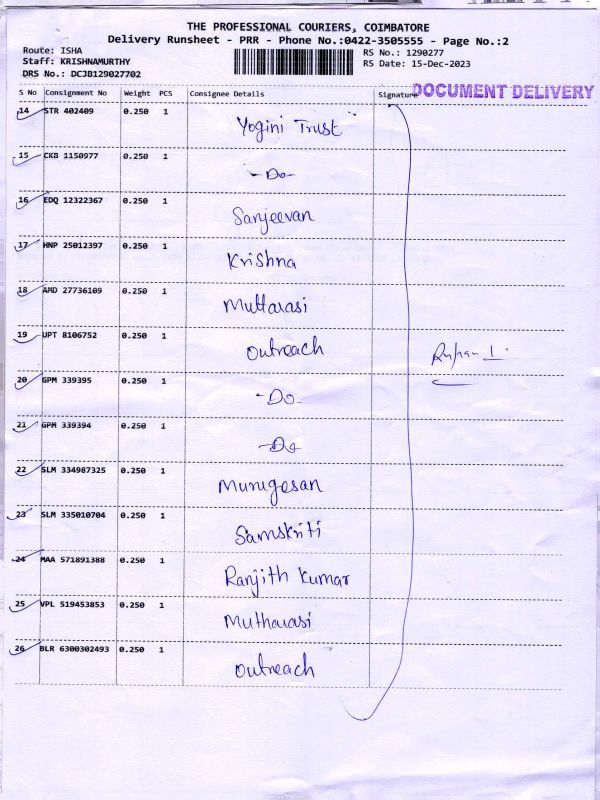 THE PROFESSIONAL COURIERS, COIMBATORE
Delivery Runsheet - PRR - Phone No.:0422-3505555 - Page No.:2
Route: ISHA
RS No.: 1290277
Staff: KRISHNAMURTHY
RS Date: 15-Dec-2023
DRS No.: DCJB129027702
S No Consignment No Weight PCS Consignee Details Signature DOCUMENT DELIVERY
14 STR 402409 0.250 1 Yogini Trust
15 CKB 1150977 0.250 1 -Do-
16 EDQ 12322367 0.250 1 Sanjeevan
17 HNP 25012397 0.250 1 Krishna
18 AMD 27736109 0.250 1 Muttarasi
19 UPT 8106752 0.250 1 Outreach
20 GPM 339395 0.250 1 -Do-
21 GPM 339394 0.250 1 -Do
22 SLM 334987325 0.250 1 Murugesan
23 SLM 335010704 0.250 1 Samskriti
24 MAA 571891388 0.250 1 Ranjith Kumar
25 VPL 519453853 0.250 1 Mutharasi
26 BLR 6300302493 0.250 1 Outreach